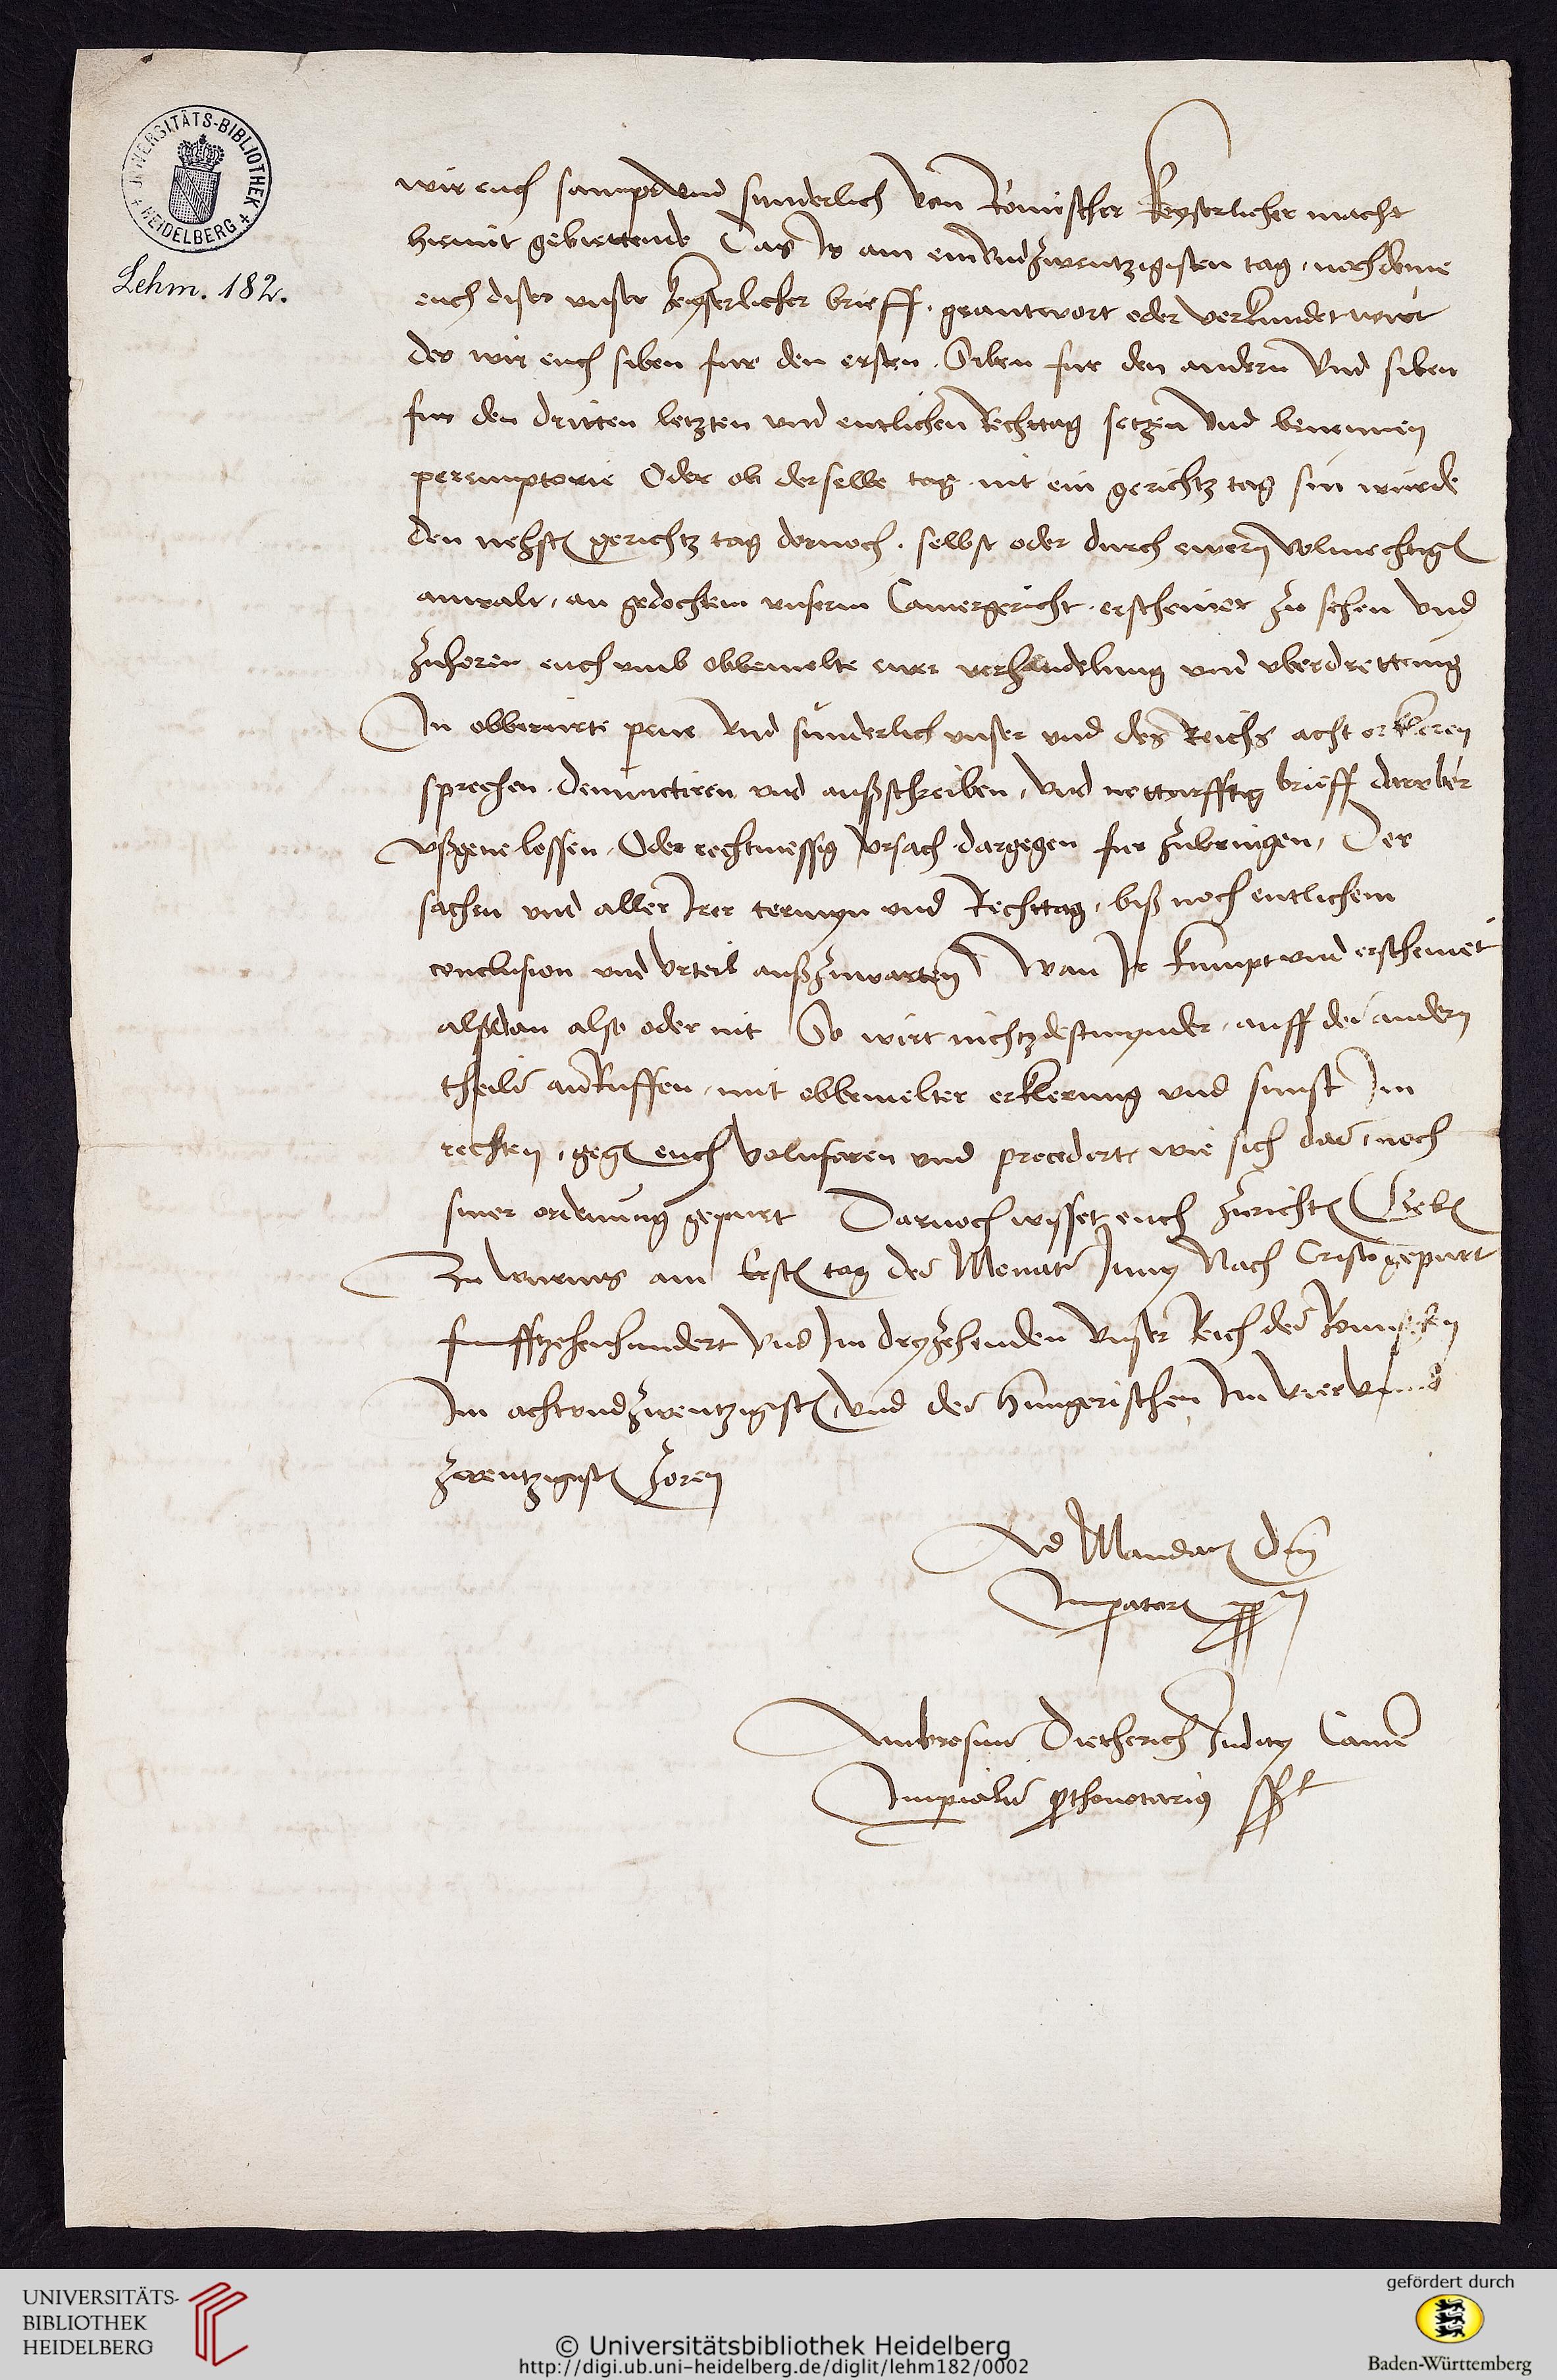 UNIVERSITÄTS-BIBLIOTHEK
HEIDELBERG
Lehm. 182.
wir euch sampt vnd sunderlich Von Romischer Keyserlicher macht
hiemit gebiettende Das Ir am ein vnd zwentzigisten tag, noch deme
euch diser vnser keyserlicher brieff, geantwort oder verkundet wirt
der wir euch siben fur den ersten, Siben fur den andern Vnd siben
fur den dritten letzten vnd entlichen Rechttag setzen Vnd benennen
peremptorie Oder ob derselbe tag nit ein gerichtz tag sin wurde
den nehsten gerichtz tag dornoch, selbst oder durch ewern Volmechtigen
anwalt, an gedochtem vnserm Camergericht, erscheinet zu sehen Vnd
zuhoren euch vmb obbemelte ewer verhandelung vnd vberdrettung
In obberurte pene Vnd sunderlich vnser vnd des Reichs acht erkleren
sprechen, denunctiren vnd außschreiben, Vnd notturfftig brieff daruber
vßgene lossen, Oder rechtmessig Vrsach dargegen fur zubringen, Der
sachen vnd aller Irer termyn vnd Rechttag, biß noch entlichem
conclusion vnd Vrteil außzuwarten Wan Ir kumpt vnd erscheinet
alßdan also oder nit So wirt nichtzdestmynder, auff des andern
theils anRuffen, mit obbemelter erklerung vnd sunst Im
rechten, gegen euch Volnfaren vnd procedert, wie sich das, noch
siner ordenung gepurt Darnoch wysset euch zurichten Geben
Zu Wurms am Ersten tag des Monats Juny Nach Cristi gepurt
funffzehenhundert Vnd Im dryzehenden Vnser Reich des Romischen
Im achtvndzwentzigsten, Vnd des Hungerischen Im viervnd
zwentzigsten Joren
Ad Mandatum dni
Imperatoris pprm
Ambrosius Dietherich Judicy Camere
Imperialis prothonotarius sst
UNIVERSITÄTS-
BIBLIOTHEK
HEIDELBERG
© Universitätsbibliothek Heidelberg
http://digi.ub.uni-heidelberg.de/diglit/lehm182/0002
gefördert durch
Baden-Württemberg